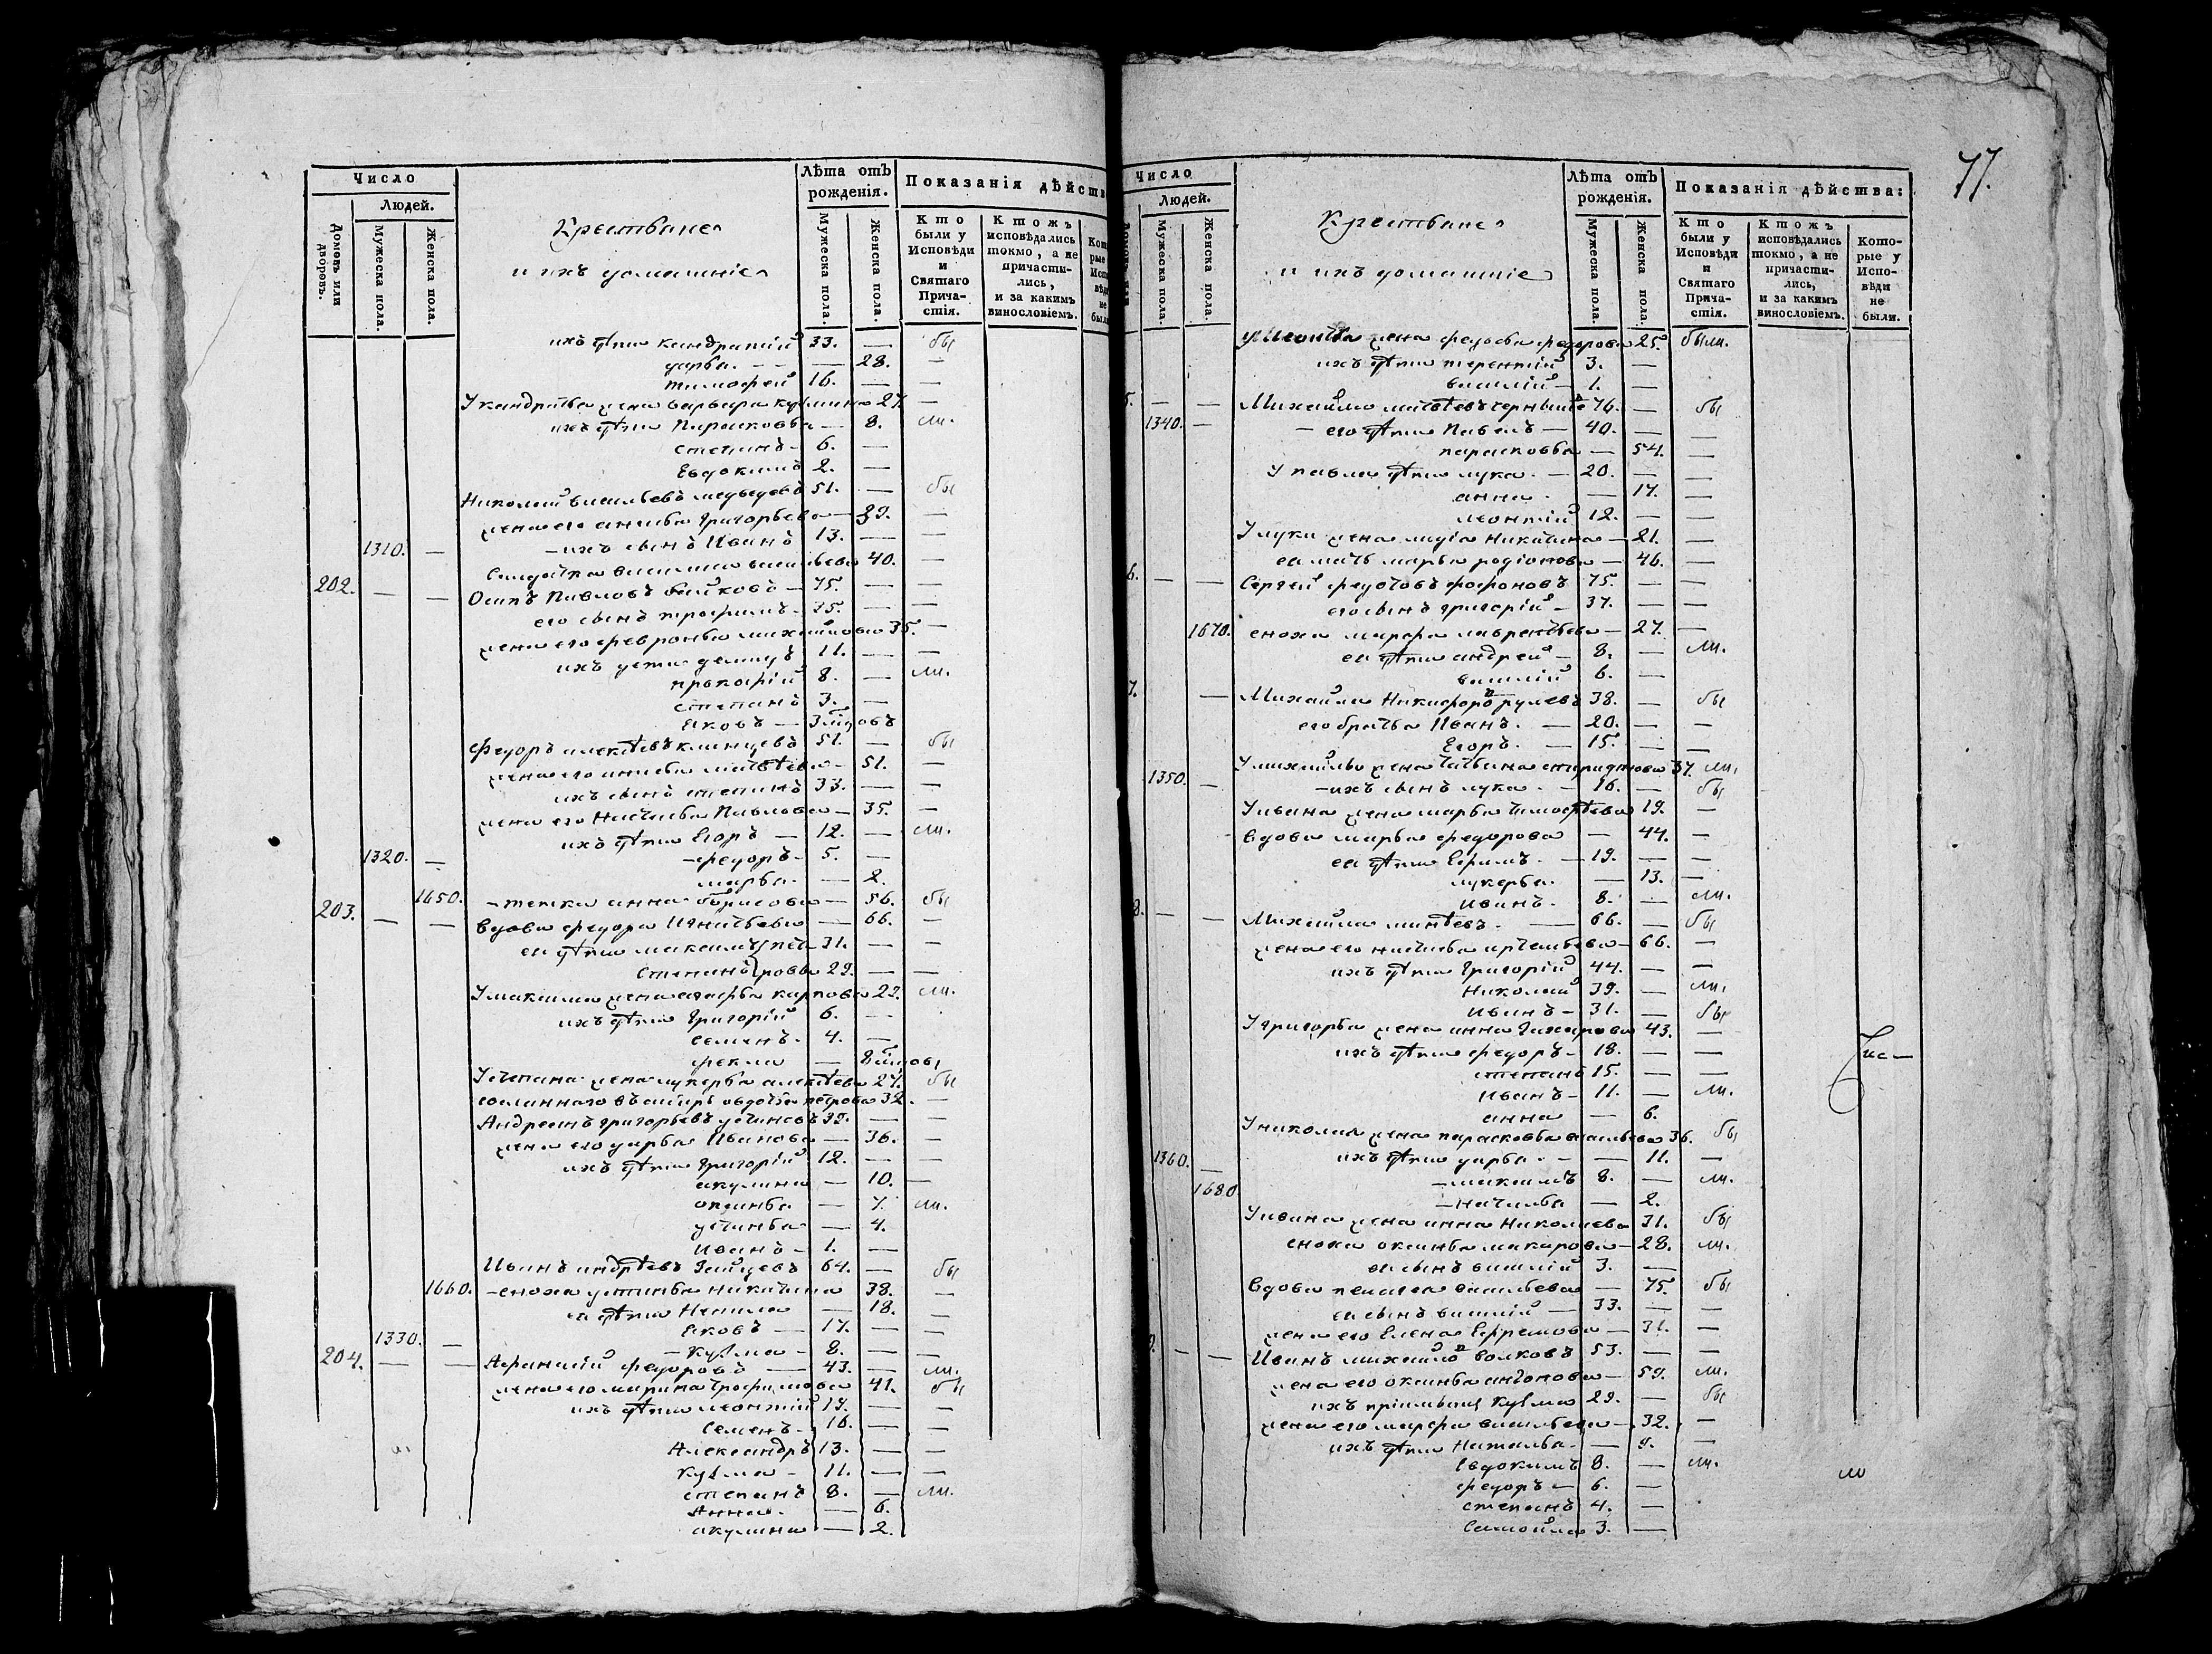 Число
Людей.
Домовъ или дворовъ.
Мужеска пола.
Женска пола.
Крестьяне
и ихъ домашніе
Лѣта отъ рожденія.
Мужеска пола.
Женска пола.
Показанія дѣйств
Кто были у Исповѣди и Святаго Причастія.
Ктожъ исповѣдались токмо, а не причастились, и за какимъ винословіемъ.
ихъ дѣти кандратій 33. — бы
дарья. — — 28. —
тимофей 16. — —
У кандратья жена варвара кузмина 27. —
ихъ дѣти Парасковья — 8. ли.
степанъ - 6. —
Евдокимъ 2. —
Николай васильевъ медведевъ 51. — бы
жена его анисья Григорьева — 39. —
1310. — - ихъ сынъ Иванъ 13. — —
Салдатка василиса васильева 40. —
202. — — Осипъ Павловъ — 75. — —
его сынъ трофимъ - 35. — —
жена его февронья михайлова 35. —
ихъ дети демидъ 11. — —
прокофій 8. — ли.
степанъ 3. —
Яковъ —
Федоръ алексѣевъ 51. — бы
жена его анисья матвѣева — 51. —
ихъ сынъ степанъ 33. — —
жена его Настасья Павлова — 35. —
ихъ дѣти Егоръ — 12. — ли.
1320. — - федоръ - 5. —
марья. — 2.
1650. - тетка анна борисова — 56. бы
203. — — вдова федора Игнатьева — 66. —
ея дѣти максимъ пет- 31. — —
Степанъ ровы 29. — —
У максима жена агафья карпова 29. ли.
ихъ дѣти Григорій 6. —
семенъ. 4. —
фекла —
У степана жена лукерья алексѣева 27. бы
авдотья петрова 32. —
Андреянъ григорьевъ устиновъ 39. — —
жена его дарья Иванова — 36. —
ихъ дѣти Григорій 12. — —
акулина — 10. —
оксинья — 7. ли.
устинья — 4.
иванъ - 1. —
Иванъ андрѣевъ Зайцевъ 64. — бы
1660. - сноха устинья никитина 38. —
ея дѣти Ненила — 18. —
Яковъ — 17. — —
1330. — - Кузма - 8. — —
204. — — Афанасій федоровъ — 43. — ли.
жена его марина трофимова 41. бы
ихъ дѣти леонтій 19. — —
Семенъ - 16. — —
Александръ 13. — —
Кузма - 11. — —
степанъ 8. — ли.
Анна. — 6.
акулина — 2.
77.
Число
Людей.
Мужеска пола.
Женска пола.
Крестьяне
и ихъ домашніе
Лѣта отъ рожденія.
Мужеска пола.
Женска пола.
Показанія дѣйства:
Кто были у Исповѣди и Святаго Причастія.
Ктожъ исповѣдались токмо, а не причастились, и за какимъ винословіемъ.
Которые у Исповѣди не были.
У Леонтья жена федосья федорова 25. были.
ихъ дѣти терентій 3. —
василій - 1. —
5. — — Михайла матвѣевъ 76. — бы
1340. — - его дѣти Павелъ — 40. — —
парасковья — 54. —
У павла дѣти лука. — 20. — —
анна. — 17. —
леонтій 12. — —
У луки жена лидія Никитина — 21. —
ея мать марья родіонова — 46. —
6. — — Сергей федотовъ фофоновъ 75. — —
его сынъ григорій - 37. — —
1670. сноха марфа лаврентьева — 27. —
ея дѣти андрей - 8. — ли.
василій 6. —
7. — Михайла Никифоровъ рулевъ 38. — бы
его братья Иванъ. — 20. — —
Егоръ. — 15. — —
У михайлы жена татьяна спиридонова 37. ли.
1350. — - ихъ сынъ лука. — 16. — бы
У ивана жена марья тимофѣева 19. —
вдова марья федорова — 44. —
ея дѣти Ефимъ. — 19. — —
лукерья. — 13. —
иванъ. 8. — ли.
8. — — Михайла минѣевъ. — 66. — бы
жена его настасья артемьева — 66. —
ихъ дѣти Григорій 44. — —
Николай 39. — ли.
иванъ — 31. — бы
У григорья жена анна Захарова 43. —
ихъ дѣти федоръ - 18. — —
степанъ 15. — —
иванъ - 11. — ли.
анна — 6.
У николая жена парасковья васильева 36. бы
1360. — ихъ дѣти дарья. — — 11. —
1680. - максимъ 8. — ли.
- Наталья — 2.
У ивана жена анна Николаева 31. бы
сноха оксинья макарова — 28. ли.
ея сынъ василій 3. —
вдова пелагея васильева — 75. бы
ея сынъ василій — 33. — —
жена его Елена Ефремова — 31. —
9. — — Иванъ михайловъ волковъ 53. — —
жена его оксинья антонова — 59. ли.
ихъ пріимышъ Кузма 29. — бы
жена его марфа васильева — 32. —
ихъ дѣти Наталья. — 9. —
Евдокимъ 8. — ли.
федоръ — 6. —
степанъ 4. —
Самойла 3. —